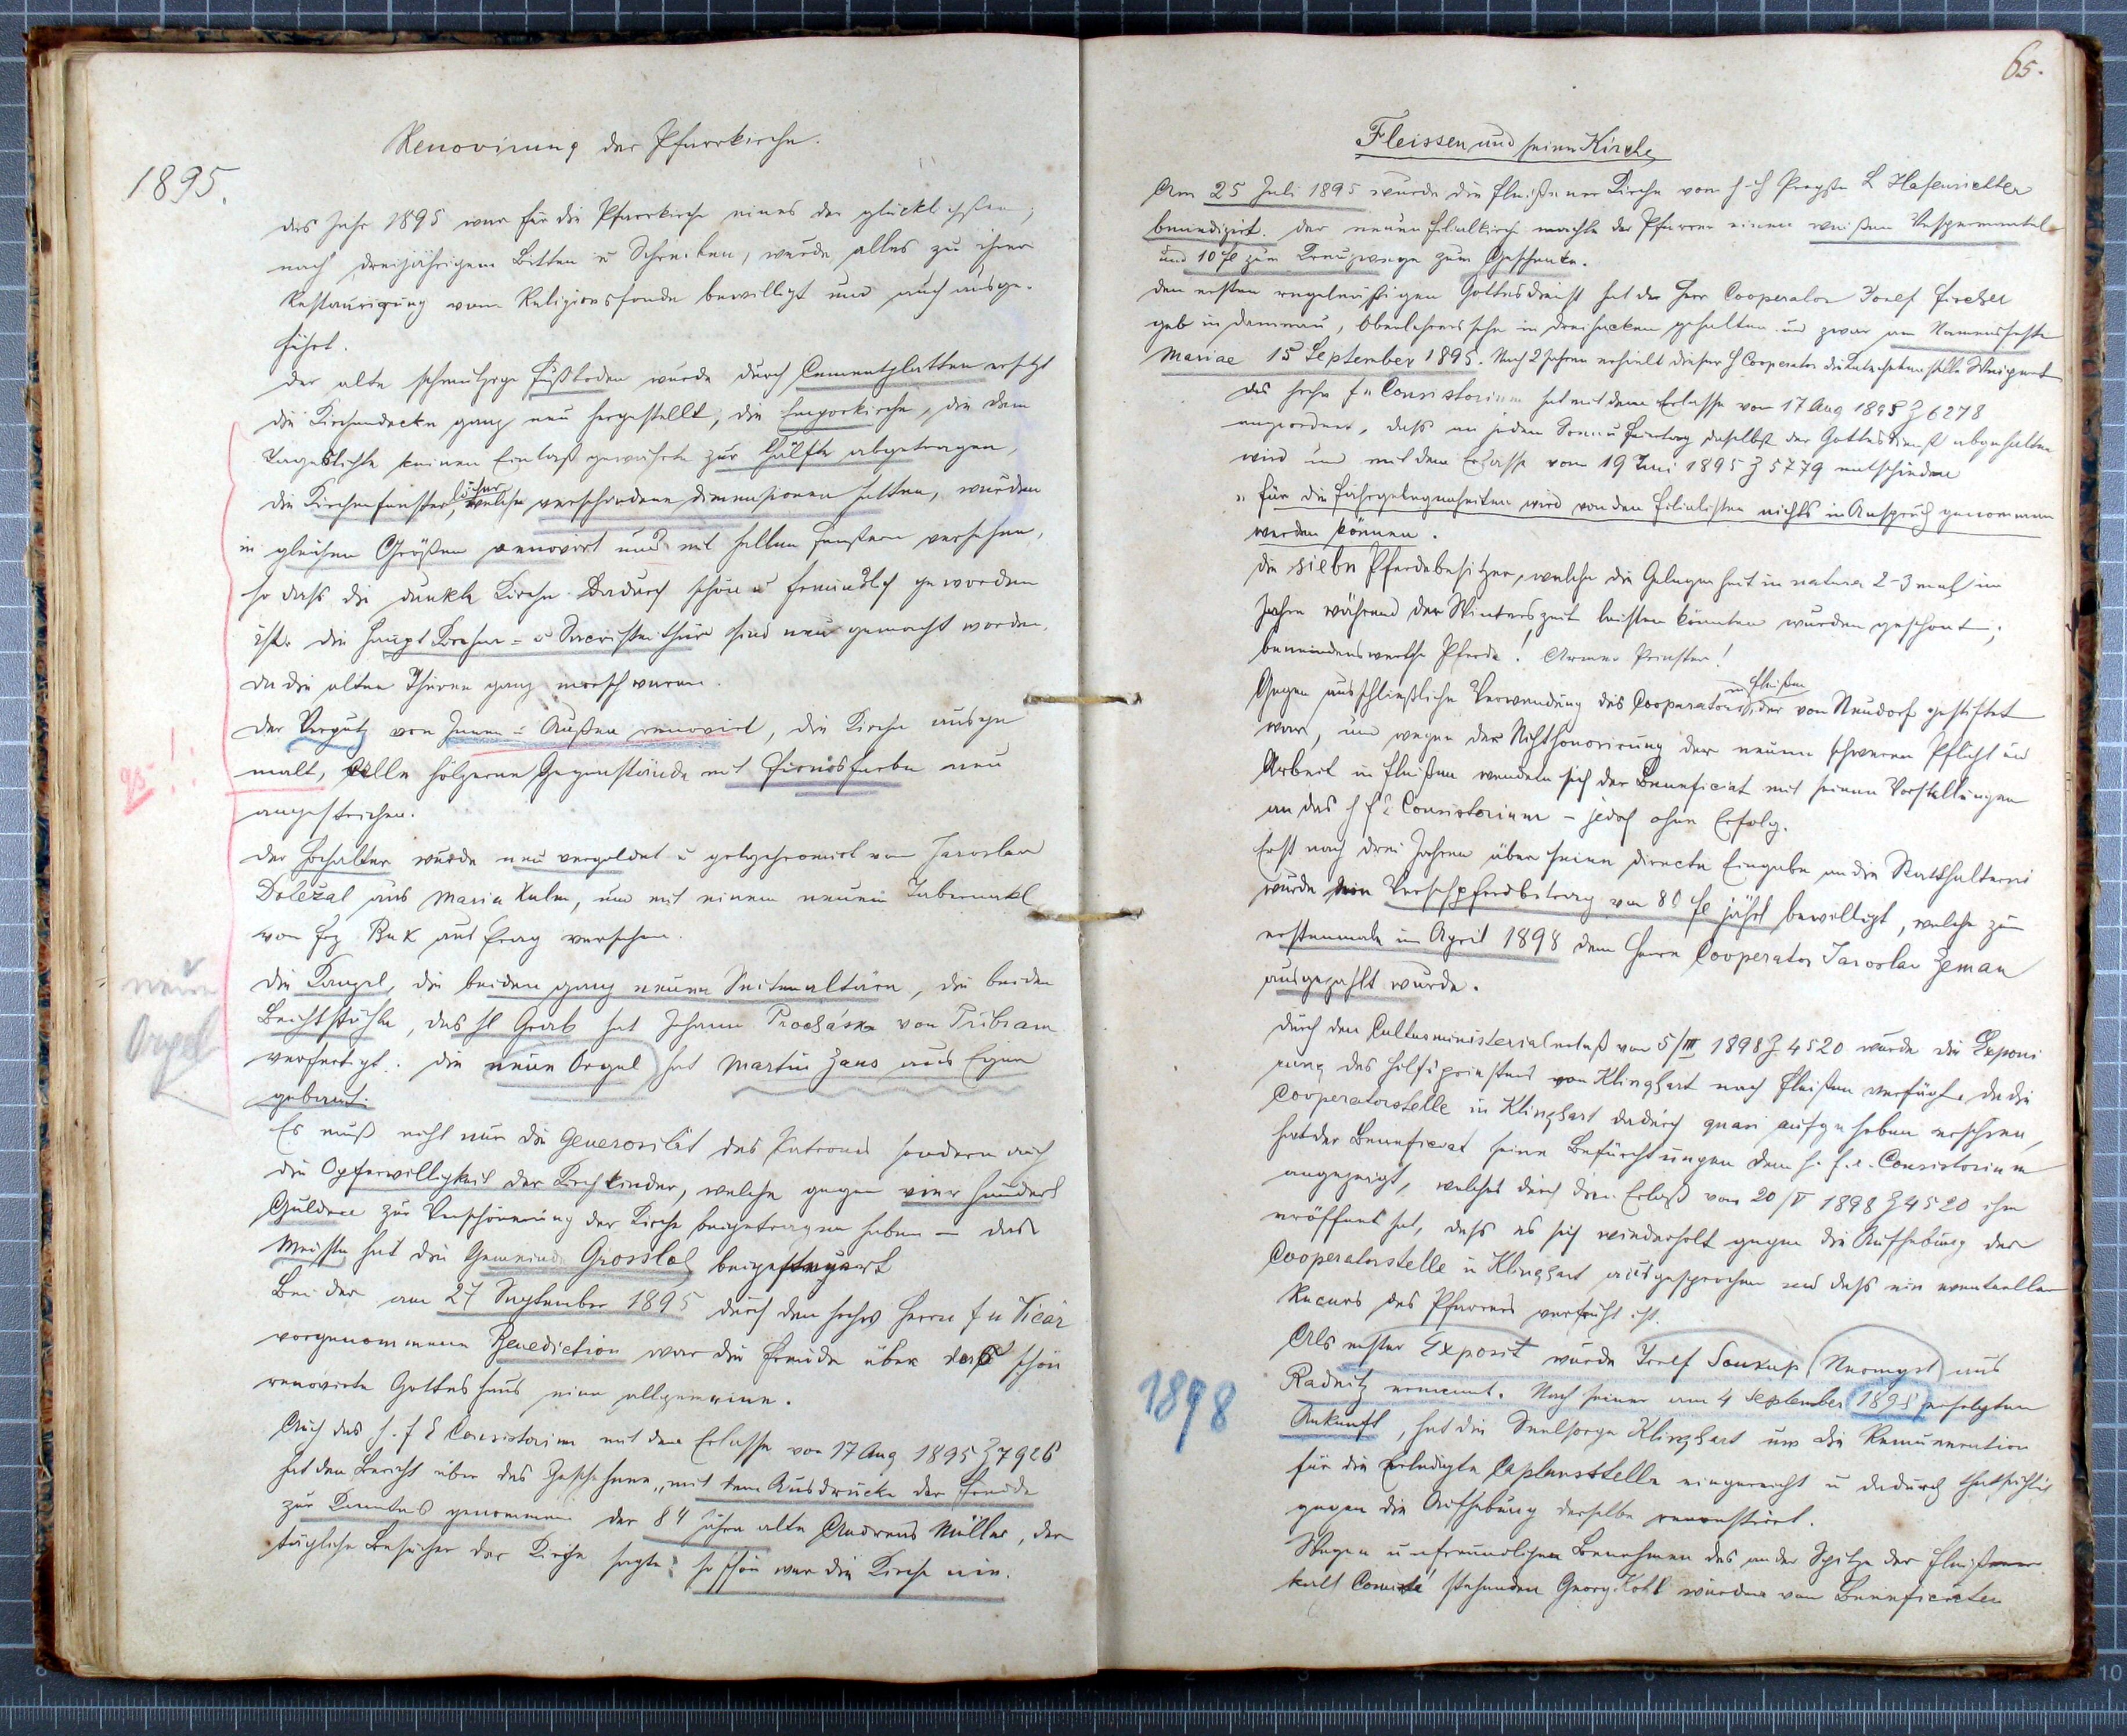 Renovirung der Pfarrkirche.
1895.
Das Jahr 1895 war für die Pfarrkirche eines der glücklichsten;
nach dreijährigem Bitten u Schreiben, wurde alles zu ihrer
Restaurirung vom Religionsfonde bewilligt und auch ausge-
führt.
Der alte schmutzige Fußboden wurde durch Cementplatten ersetzt
die Kirchendecke ganz neu hergestellt, die Emporkirche, die dem
Tageslichte keinen Einlaß gewährte zur Hälfte abgetragen,
die Kirchenfenster, welche früher verschiedene Dimensionen hatten, wurden
in gleichen Größen renovirt und mit hellen Fenstern versehen,
so dass die dunkle Kirche dadurch schön u freundlich geworden
ist. Die Haupt u Sacristeithüre sind neu gemacht worden,
da die alten Thüren ganz morsch waren.
Der Verputz von Innen u Außen renovirt, die Kirche ausge
malt, alle hölzerne Gegenstände mit Firnisfarbe neu
95!
angestrichen.
Der Hochaltar wurde neu vergoldet u polychromirt von Jaroslav
Doležal aus Maria Kulm, und mit einem neuen Tabernakl
von Buk aus Prag versehen.
neue
Orgel
Die Kanzel, die beiden ganz neuen Seitenaltäre, die beiden
Beichtstühle, das hl Grab hat Johann Procháska von Přibram
verfertigt. Die neue Orgel hat Martin Zaus aus Eger
gebaut.
Es muß nicht nur die Generosität des Patrons sondern auch
die Opferwilligkeit der Kirchkinder, welche gegen vier hundert
Gulden zur Verschönerung der Kirche beigetragen haben – das
Meiste hat die Gemeinde Grossloh beigesteuert
Bei der am 27 September 1895 durch den hochw Herrn Vicär
vorgenommenen Benediction war die Freude über das schön
renovirte Gotteshaus eine allgemeine.
Auch das h. f e Consistorium mit dem Erlasse von 17 Aug 1895 Z 7926
hat den Bericht über das Geschehene „mit dem Ausdrucke der Freude
zur Kenntnis genommen. Der 84 Jahre alte Andreas Müller, der
tägliche Besucher der Kirche sagte: so schön war die Kirche nie.
65.
Fleissen und seine Kirche
Am 25 Juli 1895 wurde die Fleißener Kirche vom Probste L Hafenrichter
benedizirt. Der neuen Filialkirche machte der Pfarrer einen weißen Vespermantel
und 10 fl zum Kreuzwege zum Geschenke.
Den ersten regelmäßigen Gottesdienst hat der Herr Cooperator Josef Fischer
geb in Damnau, Oberlehrerssohn in Dreihacken gehalten und zwar am Namensfeste
Mariae 15 September 1895. Nach 2 Jahren erhielt dieser H Cooperator die Katechetenstelle
Das hochw f e Consistorium hat mit dem Erlasse vom 17 Aug 1895 Z 6278
angeordnet, dass an jedem Sonn u Feiertag daselbst der Gottesdienst abgehalten
wird und mit dem Erlasse vom 19 Juni 1895 Z 5779 entschieden
„ für die Fahrgelegenheiten wird von den Filialisten nichts in Anspruch genommen
werden können.
Die sieben Pferdebesitzer, welche die Gelegenheit in natura 2–3 mal im
Jahre während der Winterszeit leisten könnten wurden geschont;
beneidenswerthe Pferde! Armer Priester!
Gegen ausschließliche Verwendung des Cooperators in Fleißen, der von Neudorf gestiftet
war, und wegen der Nichthonorirung der neuen schweren Pflicht und
Arbeit in Fleißen wendete sich der Beneficiat mit seinen Vorstellungen
an das h f e Consistorium – jedoch ohne Erfolg.
Erst nach drei Jahren über seine directe Eingabe an die Statthalterei
wurde ein von 80 fl jährl bewilligt, welche zum
erstenmale im April 1898 dem Herrn Cooperator Jaroslav Zeman
ausgezahlt wurde.
Durch den Cultusministerialerlaß von 5/III 1898 Z 4520 wurde die Exponi
rung des Hilfspriesters von Klinghart nach Fleißen verfügt. Da die
Cooperatorstelle in Klinghart dadurch quasi aufgehoben erschien,
hat der Beneficiat seine Befürchtungen dem h. f. e. Consistorium
angezeigt, welches durch den Erlaß vom 20/V 1898 Z 4520 ihm
eröffnet hat, dass es sich wiederholt gegen die Aufhebung der
Cooperatorstelle in Klinghart ausgesprochen und dass ein eventueller
Recurs des Pfarrers verfrüht ist.
Als erster Exposit wurde Josef Soukup Neomyst aus
1898
Radnitz ernannt. Nach seiner am 4 September 1898 erfolgten
Ankunft, hat die Seelsorge Klinghart um die Remuneration
für die erledigte Caplansstelle eingereicht u dadurch thatsächlich
gegen die Aufhebung derselbe remonstrirt.
Wegen unfreundlichen Benehmen des an der Spitze der Fleißener
kath Comité stehenden Georg Kohl wurden vom Beneficiaten